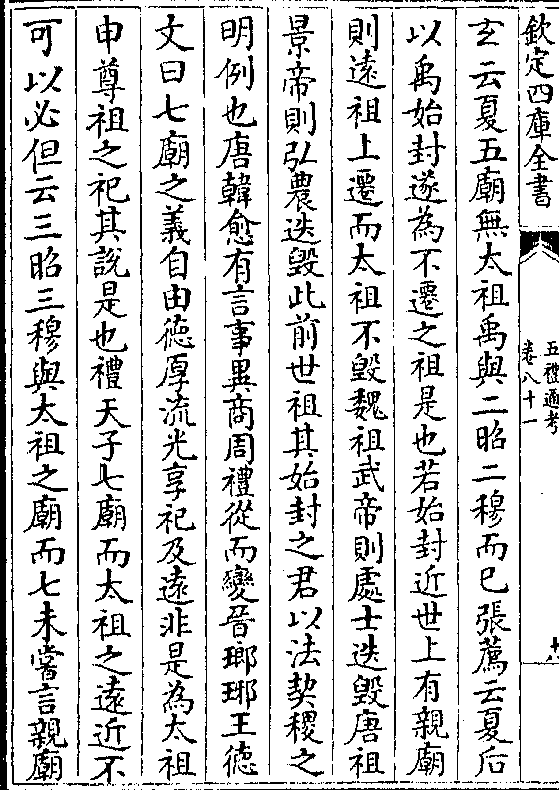 欽定四庫全書
五禮通考
卷八十一
玄云夏五廟無太祖禹與二昭二穆而已張薦云夏后
以禹始封遂為不遷之祖是也若始封近世上有親廟
則遠祖上遷而太祖不毀魏祖武帝則處士迭毀唐祖
景帝則弘農迭毀此前世祖其始封之君以法契稷之
明例也唐韓愈有言事異商周禮從而變晉瑯琊王德
文曰七廟之義自由德厚流光享祀及遠非是為太祖
申尊祖之祀其說是也禮天子七廟而太祖之遠近不
可以必但云三昭三穆與太祖之廟而七未嘗言親廟